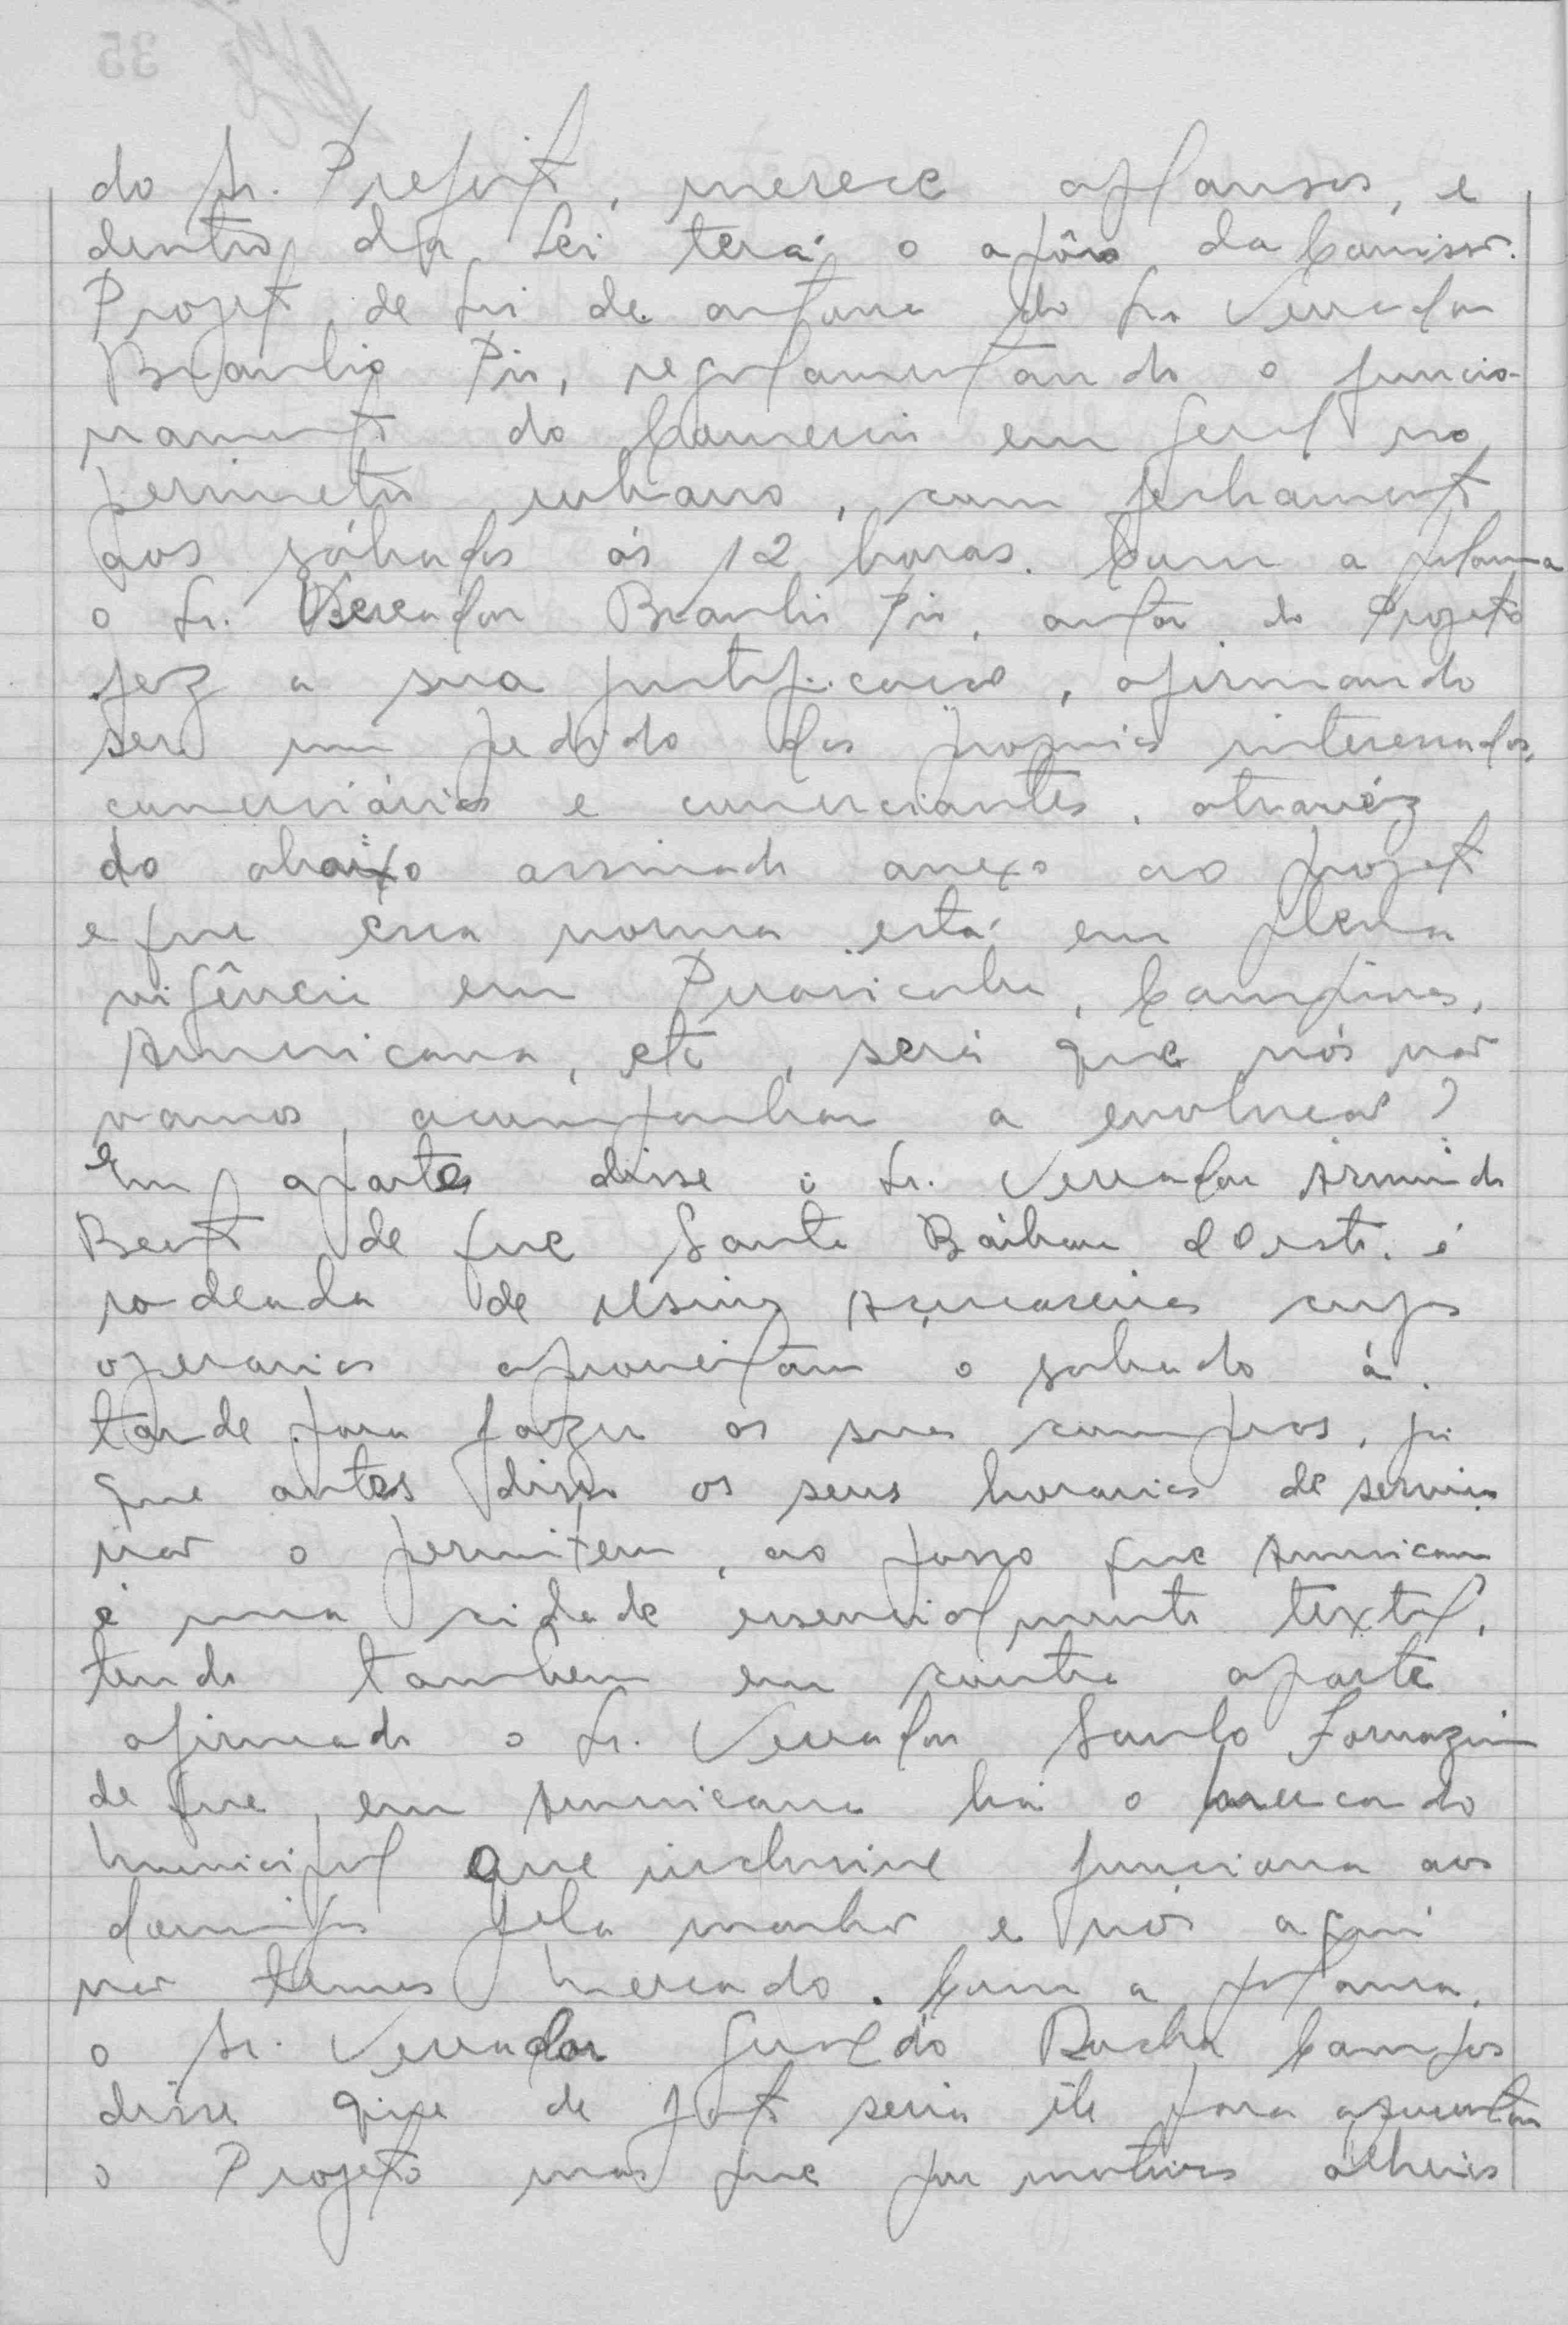 do Sr. Prefeito, merece aplausos, e
dentro da Lei terá o apôio da Comissão.
Projeto de Lei de autoria do Sr. Vereador
Braulio Pio, regulamentando o funcio-
namento do Comercio em geral no
perimetro urbano, com fechamento
aos sábados ás 12 horas. Com a palavra
o Sr. Vereador Braulio Pio, autor do Projeto
fez a sua justificação, afirmando
ser um pedido dos proprios interessados,
comerciários e comerciantes, atravéz
do abaixo assinado anexo ao projeto
e que essa norma está em plena
vigência em Piracicaba, Campinas,
Americana, etc, será que nós não
vamos acompanhar a evolução?
Em aparte disse o Sr. Vereador Armindo
Bento de que Santa Bárbara d'Oeste é
rodeada de Usinas Açucareiras cujos
operarios aproveitam o sabado á
tarde para fazer as suas compras, já
que antes disso os seus horarios de serviço
não o permitem, ao passo que Americana
é uma cidade essencialmente textil,
tendo tambem em contra aparte
afirmado o Sr. Vereador Santo Fornazin
de que em Americana há o mercado
municipal que inclusive funciona aos
domingos pela manhã e nós aqui
não temos mercado. Com a palavra,
o Sr. Vereador Geraldo Rocha Campos
disse que de fato seria êle para apresentar
o Projeto mas que por motivos alheios